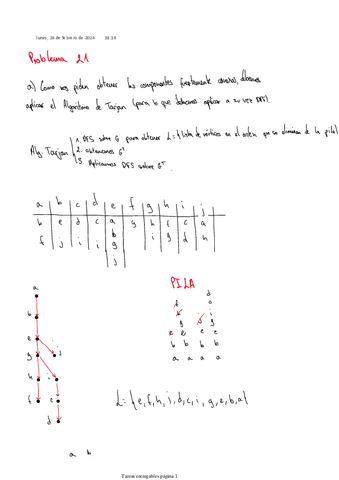 lunes, 26 de febrero de 2024 18:38
Problema 21
a) Como nos piden obtener las componentes fuertemente conexas, debemos
aplicar el Algoritmo de Tarjan (para lo que debemos aplicar a su vez DFS).
1. DFS sobre G para obtener L = { lista de vértices en el orden que se eliminan de la pila}
Alg. Tarjan 2. obtenemos G^T
3. Aplicamos DFS sobre G^T
a b c d e f g h i j
b e d c a g h f c a
f j i i b i g d h
g
j
a
b
e
g j
h i
f c
d
PILA
L = {e, f, h, i, d, c, i, g, e, b, a}
a b
Tareas entregables página 1